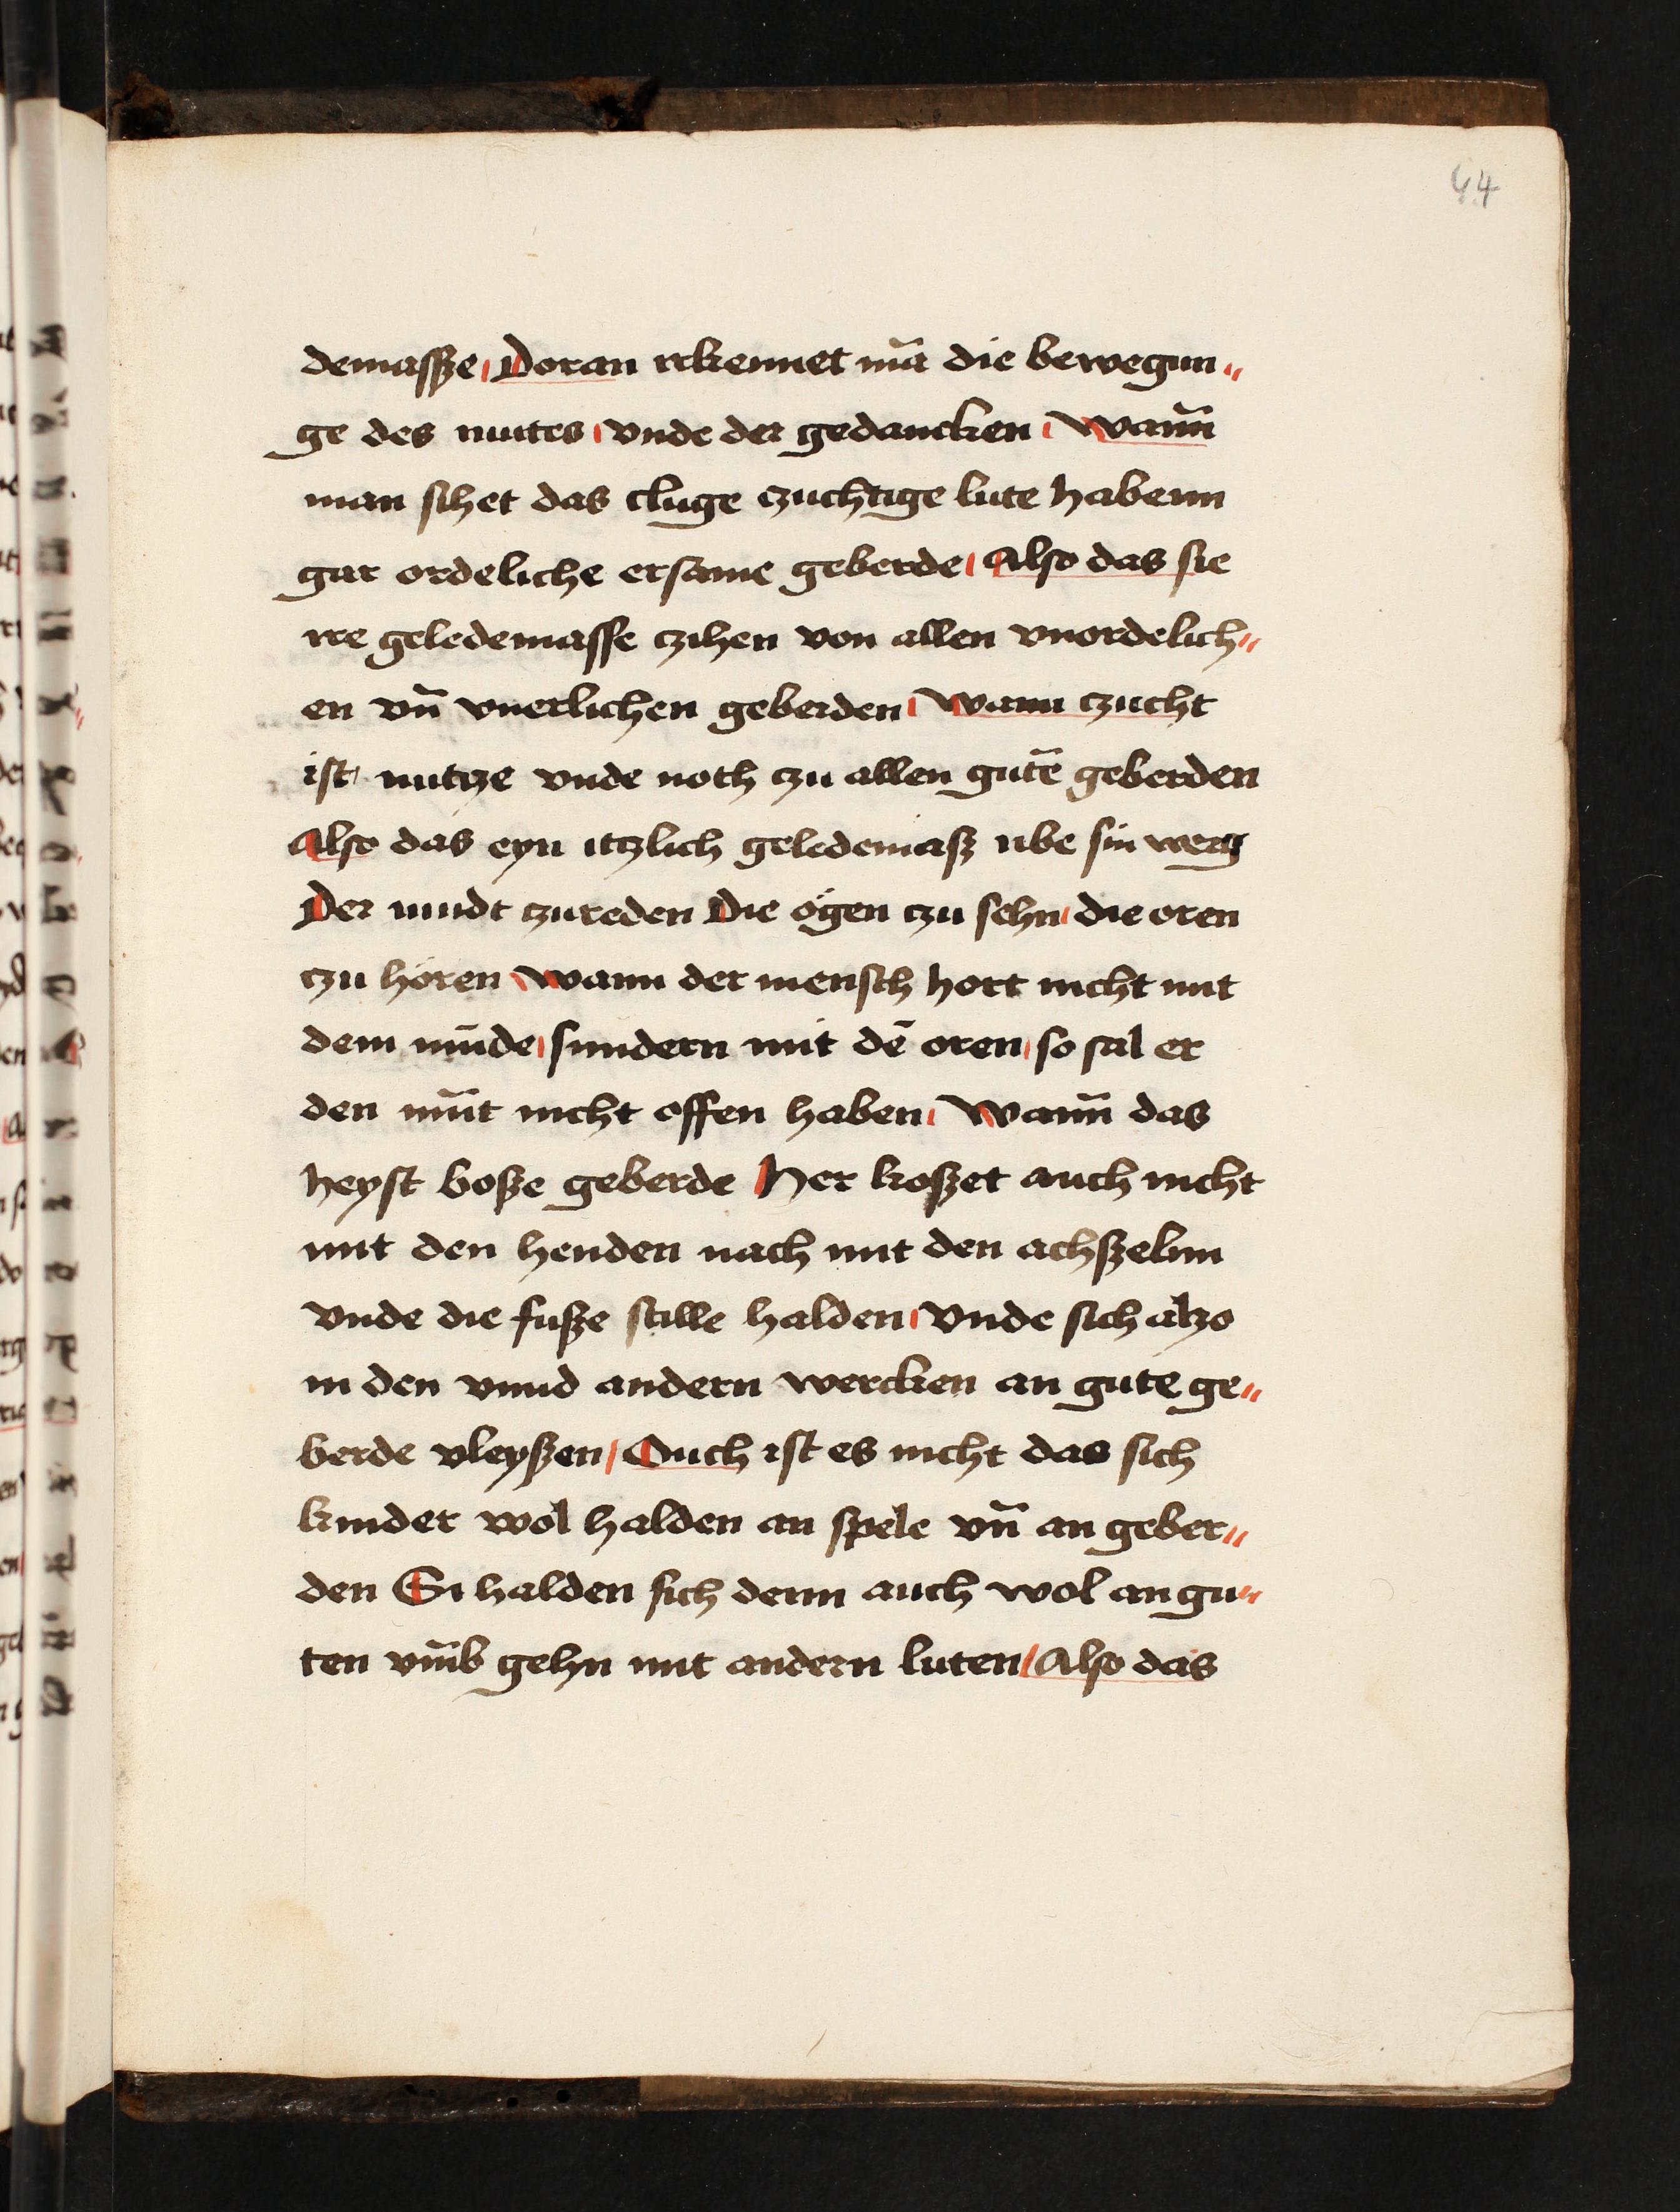 44
demassze Doran irkennet mā die bewegun
ge des mutes vnde der gedancken Wann̄
man sihet das cluge czuchtige lute habenn
gar ordeliche ersame geberde Also das sie
ire geledemasse czihen von allen vnordelich
en vn̄ vnerlichen geberden Wann czucht
ist nutcze vnde noth czu allen gutē geberden
Also das eyn itzlich geledemasz vbe sin werg
Der mudt czureden Die ogen czu sehn die oren
czu horen Wann der mensch hort nicht mit
dem mūde sundern mit dē oren so sal er
den mūt nicht offen haben Wann̄ das
heyst bosze geberde Her koszet auch nicht
mit den henden nach mit den achszelnn
vnde die fusze stille halden Vnde sich alzo
in den vnnd andern wercken an gute ge
berde vleyszen Ouch ist es nicht das sich
kinder wol halden an spele vn̄ an geber
den Si halden sich denn auch wol an gu
ten vm̄b gehn mit andern luten Also das